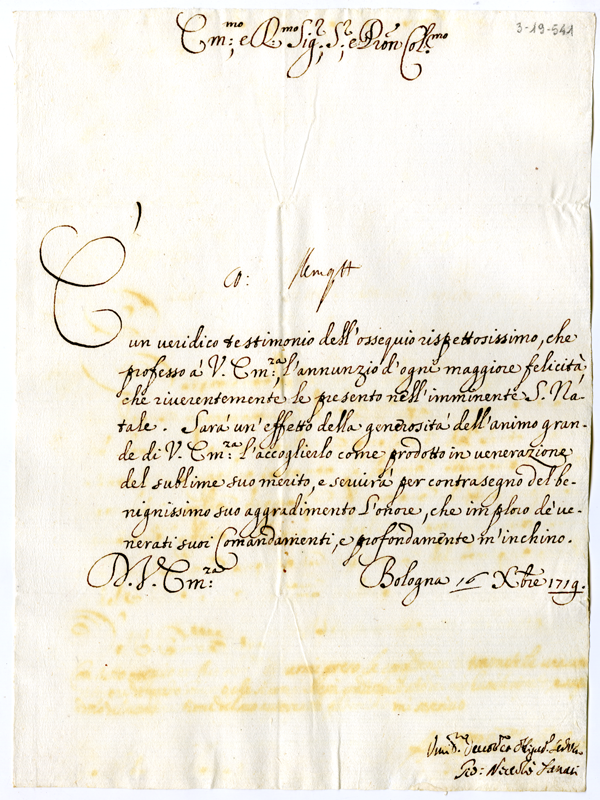 3-19-541
Em:mo e R.mo Sig.r S.r e Pron Col.mo
È
un veridico testimonio dell'ossequio rispettosissimo, che
professo à V. Em:ra, l'annunzio d'ogni maggiore felicità
chè riverentemente le presento nell'imminente S. Na-
tale. Sarà un'effetto della generosità dell'animo gran-
de di V. Em:ra l'accoglierlo come prodotto in venerazione
del sublime suo merito, e servirà per contrasegno del be-
nignissimo suo aggradimento l'onore, che imploro de' ve-
nerati suoi Comandamenti, e profondamente m'inchino.
D. V. Em:ra Bologna 16 Xbre 1719.